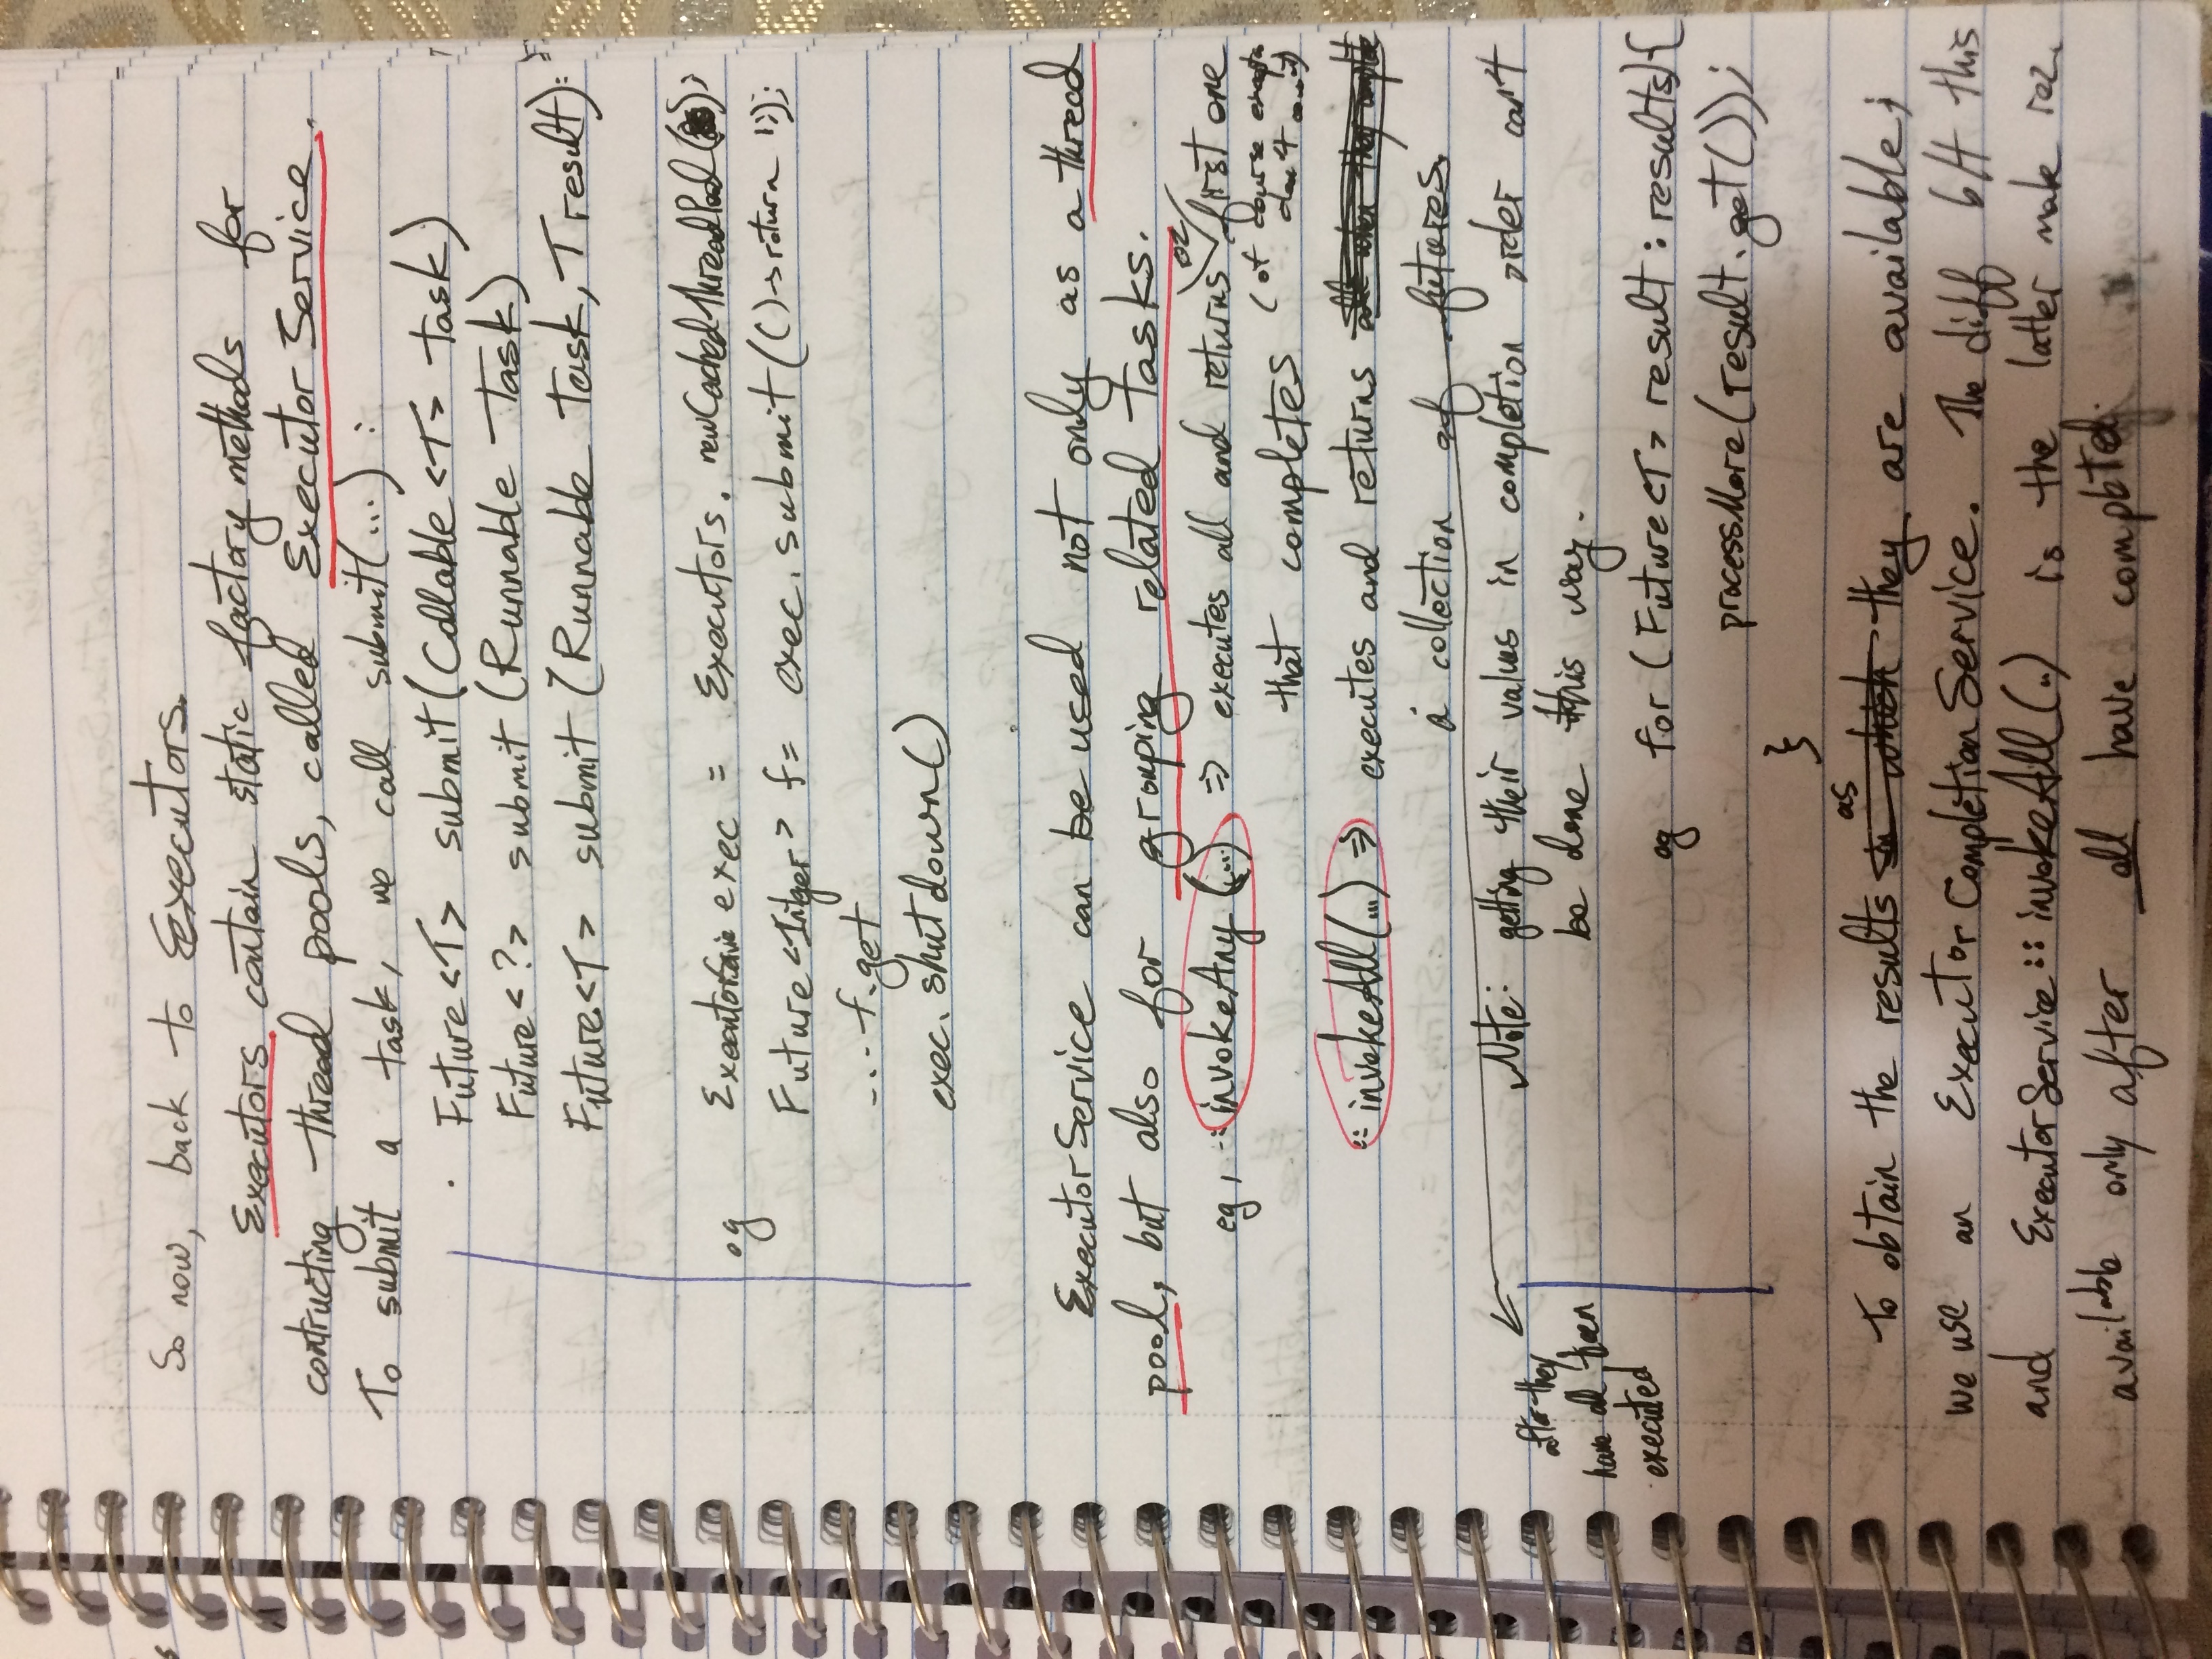 So now, back to Executors.
Executors contain static factory methods for
contructing thread pools, called Executor Service.
To submit a task, we call submit(...) :
· Future<T> submit(Callable<T> task)
Future<?> submit (Runnable Task)
Future<T> submit (Runnable Task, T result):
eg ExecutorService exec = Executors. newCachedThreadPool();
Future<Integer> f= exec. submit(()->return 1;);
.... f.get
exec. shutdown()
ExecutorService can be used not only as a thread
pool, but also for grouping related tasks.
eg, ::invokeAny(...) => executes all and returns first one
that completes (of course
don't count)
:: invokeAll(...) => executes and returns all when they complete
a collection of futures.
Note: getting their values in completion order can't
be done this way.
after they
have all been
executed
eg for (Future<T> result : results){
processMore(result.get());
}
To obtain the results in which as they are available;
we use an ExecutorCompletionService. The diff b/t this
and ExecutorService::invokeAll(..) is the latter make rez.
available only after all have completed.